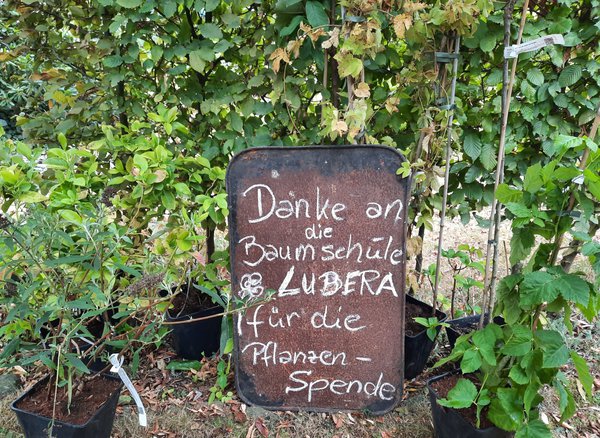 Danke an
die
Baumschule
LUBERA
für die
Pflanzen-
Spende